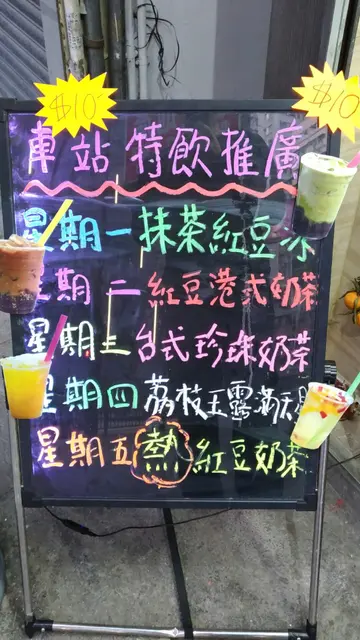 $10
$10
車站特飲推廣
星期一抹茶紅豆冰
星期二紅豆港式奶茶
星期三台式珍珠奶茶
星期四荔枝玉露滿天星
星期五熱紅豆奶茶